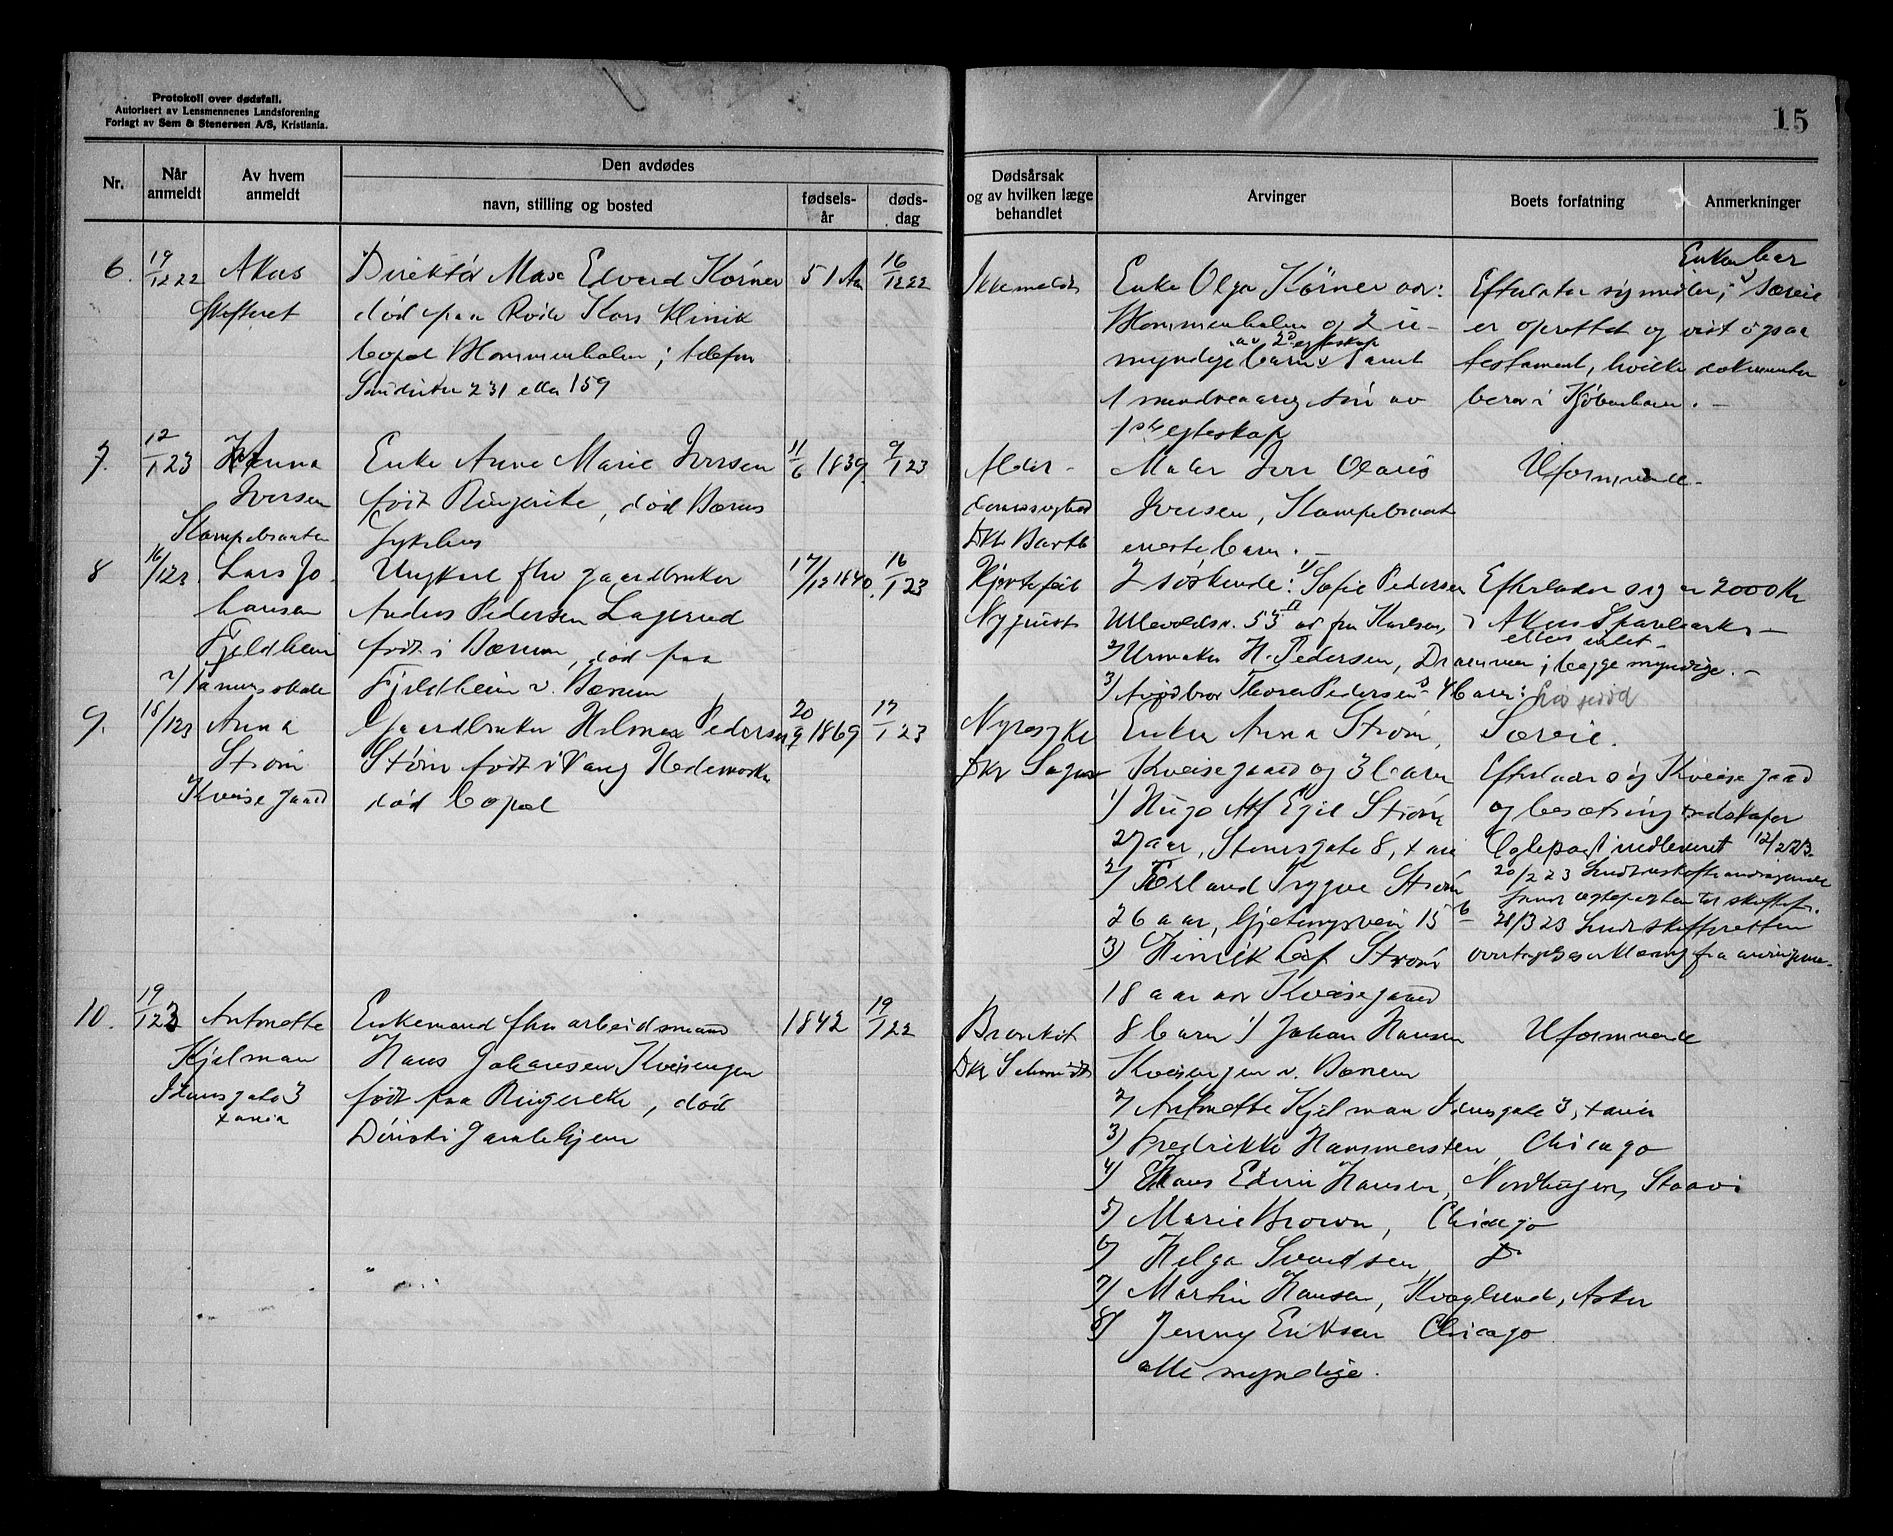 Protokoll over dødsfall.
Autorisert av Lensmennenes Landsforening
Forlagt av Sem & Stenersen A/S, Kristiania.
15
Nr.
Når anmeldt
Av hvem anmeldt
Den avdødes
navn, stilling og bosted
fødsels-år
døds-dag
Dødsårsak og av hvilken læge behandlet
Arvinger
Boets forfatning
Anmerkninger
6. 19/12 22 Akers
Skifteret
Direktør Max Edvard Körner
død paa Røde Kors Klinik
bopæl Blommenholm; telefon
Sandviken 231 eller 159
51 Aar
16/12 22
Ikke meldt
Enke Olga Körner adr:
Blommenholm og 2 u-
av 2det egteskap
myndige barn samt
1 mindreaarig søn av
1ste egteskap
Enken bær
Efterlater sig midler, Særeie
er oprettet og vist ogsaa
testament, hvilke dokumenter
beror i Kjøbenhavn. -
7. 12/1 23 Anna
Iversen
Kampebraaten
Enke Anne Marie Iversen
født Ringerike, død Bærums
Sykehus
11/6 1839
9/1 23
Alder-
domssvakhed
Dr Barth
Maler Iver Olaus
Iversen, Kampebraat
eneste barn. -
Uformuende.
8 16/1 23. Lars Jo-
hansen
Fjeldheim
v/ Tanumskole
Ungkarl fhv gaardbruker
Anders Pedersen Lagerud
født i Bærum, død paa
Fjeldheim v. Bærum
17/12 1840.
16/1 23
Hjertefeil
Nyquist
2 søskende: 1) Sofie Pedersen
Ullevoldsv. 53 II ad fru Karlsen,
2) Urmaker H. Pedersen, Drammen; begge myndige. -
3) Avdød bror Thorer Pedersens 4 barn:
Efterlader sig ca 2000 Kr
i Akers Sparebank -
ellers intet -
9. 18/1 23 Anna
Strøm
Kveise gaard
Gaardbruker Hilmar Pedersen
Strøm født i Vang Hedemarken
død bopæl
20/9 1869
17/1 23
Nyresyke
Dr
Enke Anna Strøm,
Kveise gaard og 3 barn
1) Hugo Alf Egil Strøm
27 aar, Stensgate 8, xania
2) Erland Trygve Strøm
26 aar, Gjetemyrsvei 15 b
3) Hinrik Leif Strøm
18 aar adr Kveise gaard
Særeie.
Efterlader sig Kveise gaard
og besætning redskaper
Egtepagt indleveret 12/2 23.
20/2 23 Sendt
samt egtepagten til skifter.
28/3 23 Sendt skifteretten
fra arvingene.
10. 19/1 23 Antonette
Kjelman
Stensgate 3
xania
Enkemand fhv arbeidsmand
Hans Johansen Kveisengen
født paa Ringerike, død
Dønski Gamlehjem
1842
19/1 22
Bronkit
Dr Schmidt
8 barn 1) Johan Hansen
Kveisengen v. Bærum
2) Antonette Kjelman Stensgate 3, xania
3) Fredrikke Hansmersten, Chicago
4) Hans Edvin Hansen, Nordhugen,
5) Marie Brown, Chicago
6) Helga Svendsen
7) Martin Hansen, Kvæglund, Asker
8) Jenny Eriksen Chicago.
alle myndige.
Uformuende